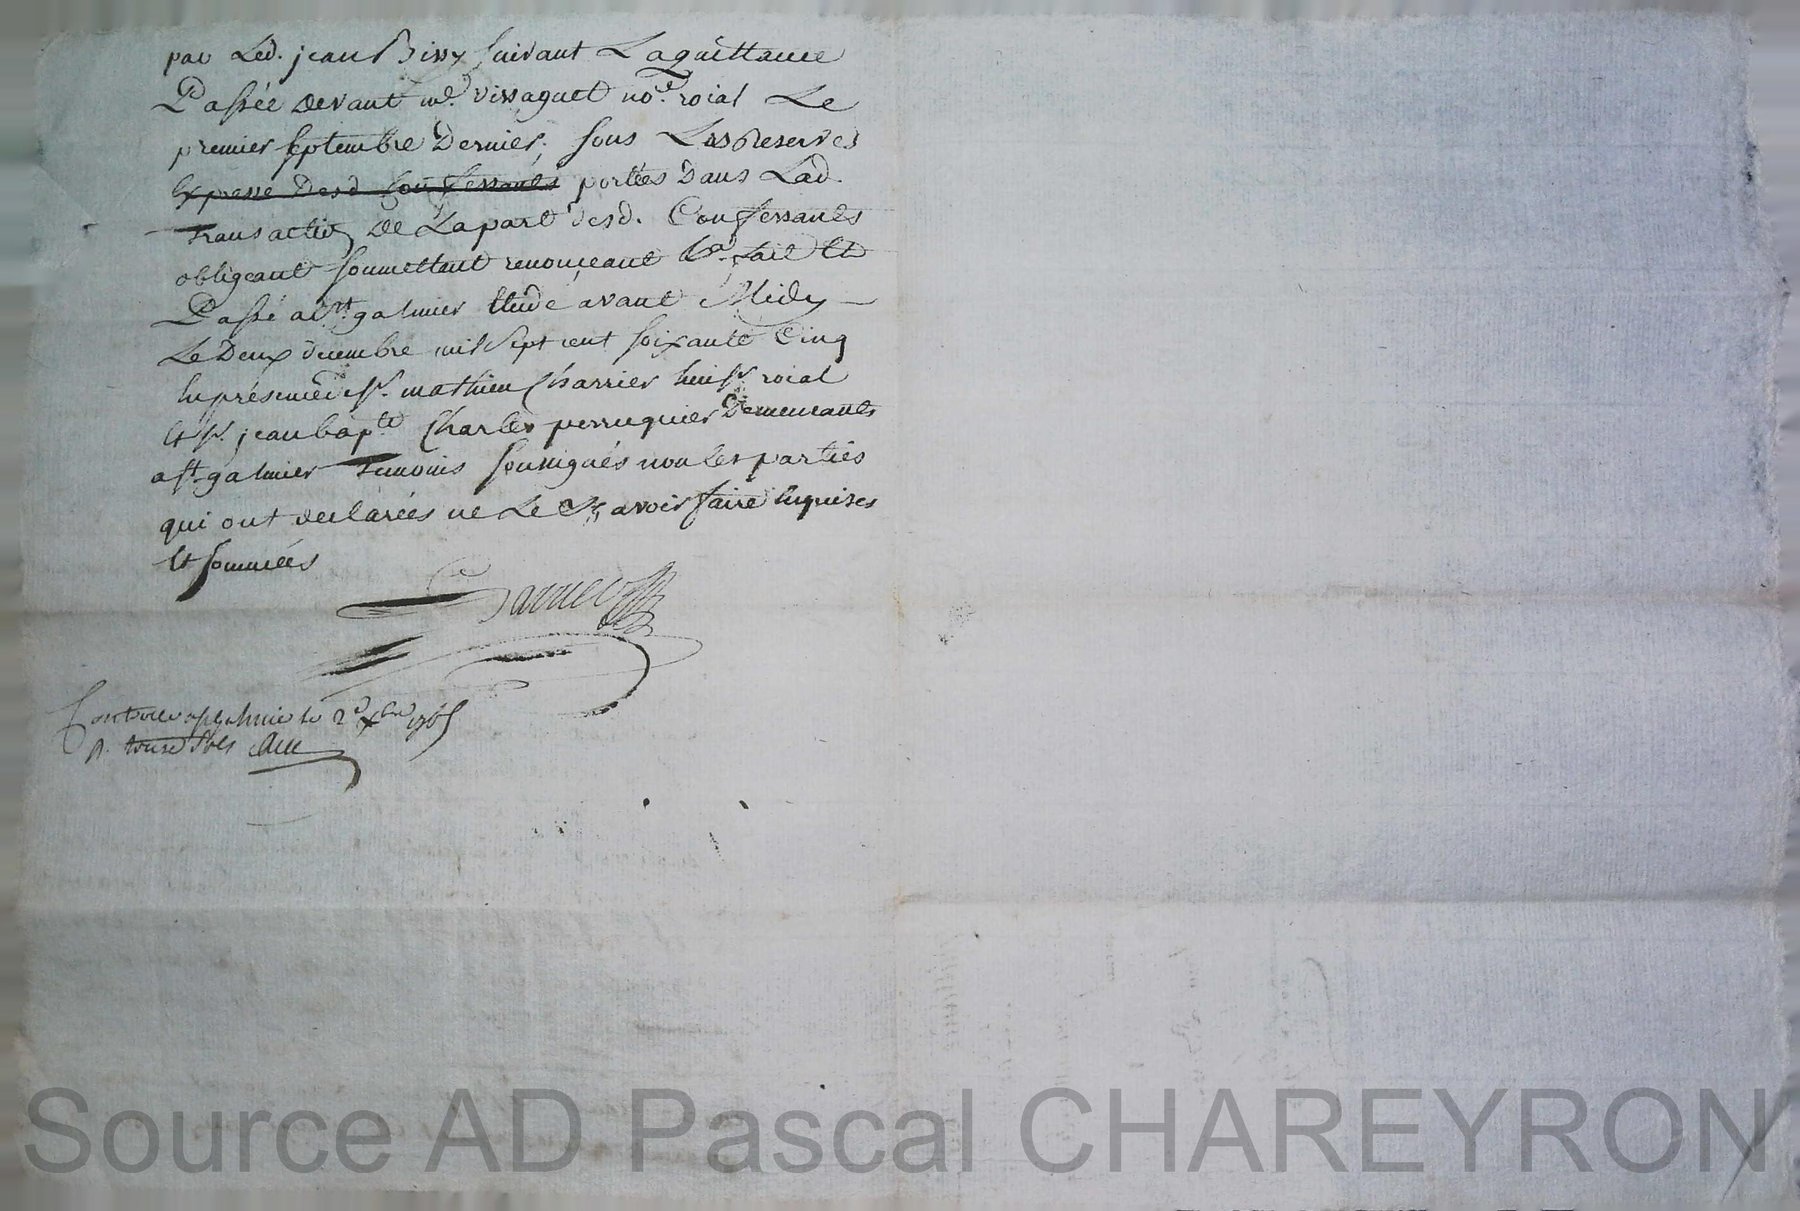 par Led. jean Bissy suivant Laquittance
Passée devant me. vissaguet nore. roial Le
premier septembre Dernier, sous Les Reserves
Expresse Desd. Confessants portées dans Lad.
Transaction de Lapart desd. Confessants
obligeant soumettant renonçeant &a. fait Et
Passé a st. galmier Etude avant Midy
Le Deux decembre mil sept cent soixante Cinq
En présence de sr. mathieu Charrier huissr. roial
Et sr. jean bapte. Charles perruquier Demeurants
a st. galmier Temoins soussignés non les parties
qui ont declarées ne Le sçavoir faire Enquises
Et sommées
Controllé a st galmier le 2e Xbre 1765
R. treize sols
Source AD Pascal CHAREYRON